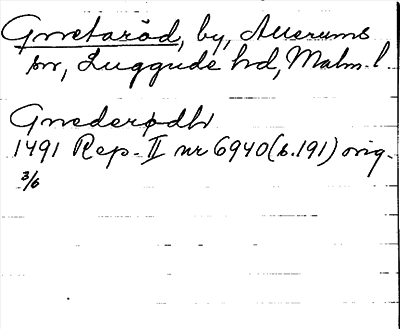 Gnetaröd, by, Allerums
sn, Luggude hd, Malm. l.
Gnederødh
1491 Rep. II nr 6940 (s.191) orig.
3/6